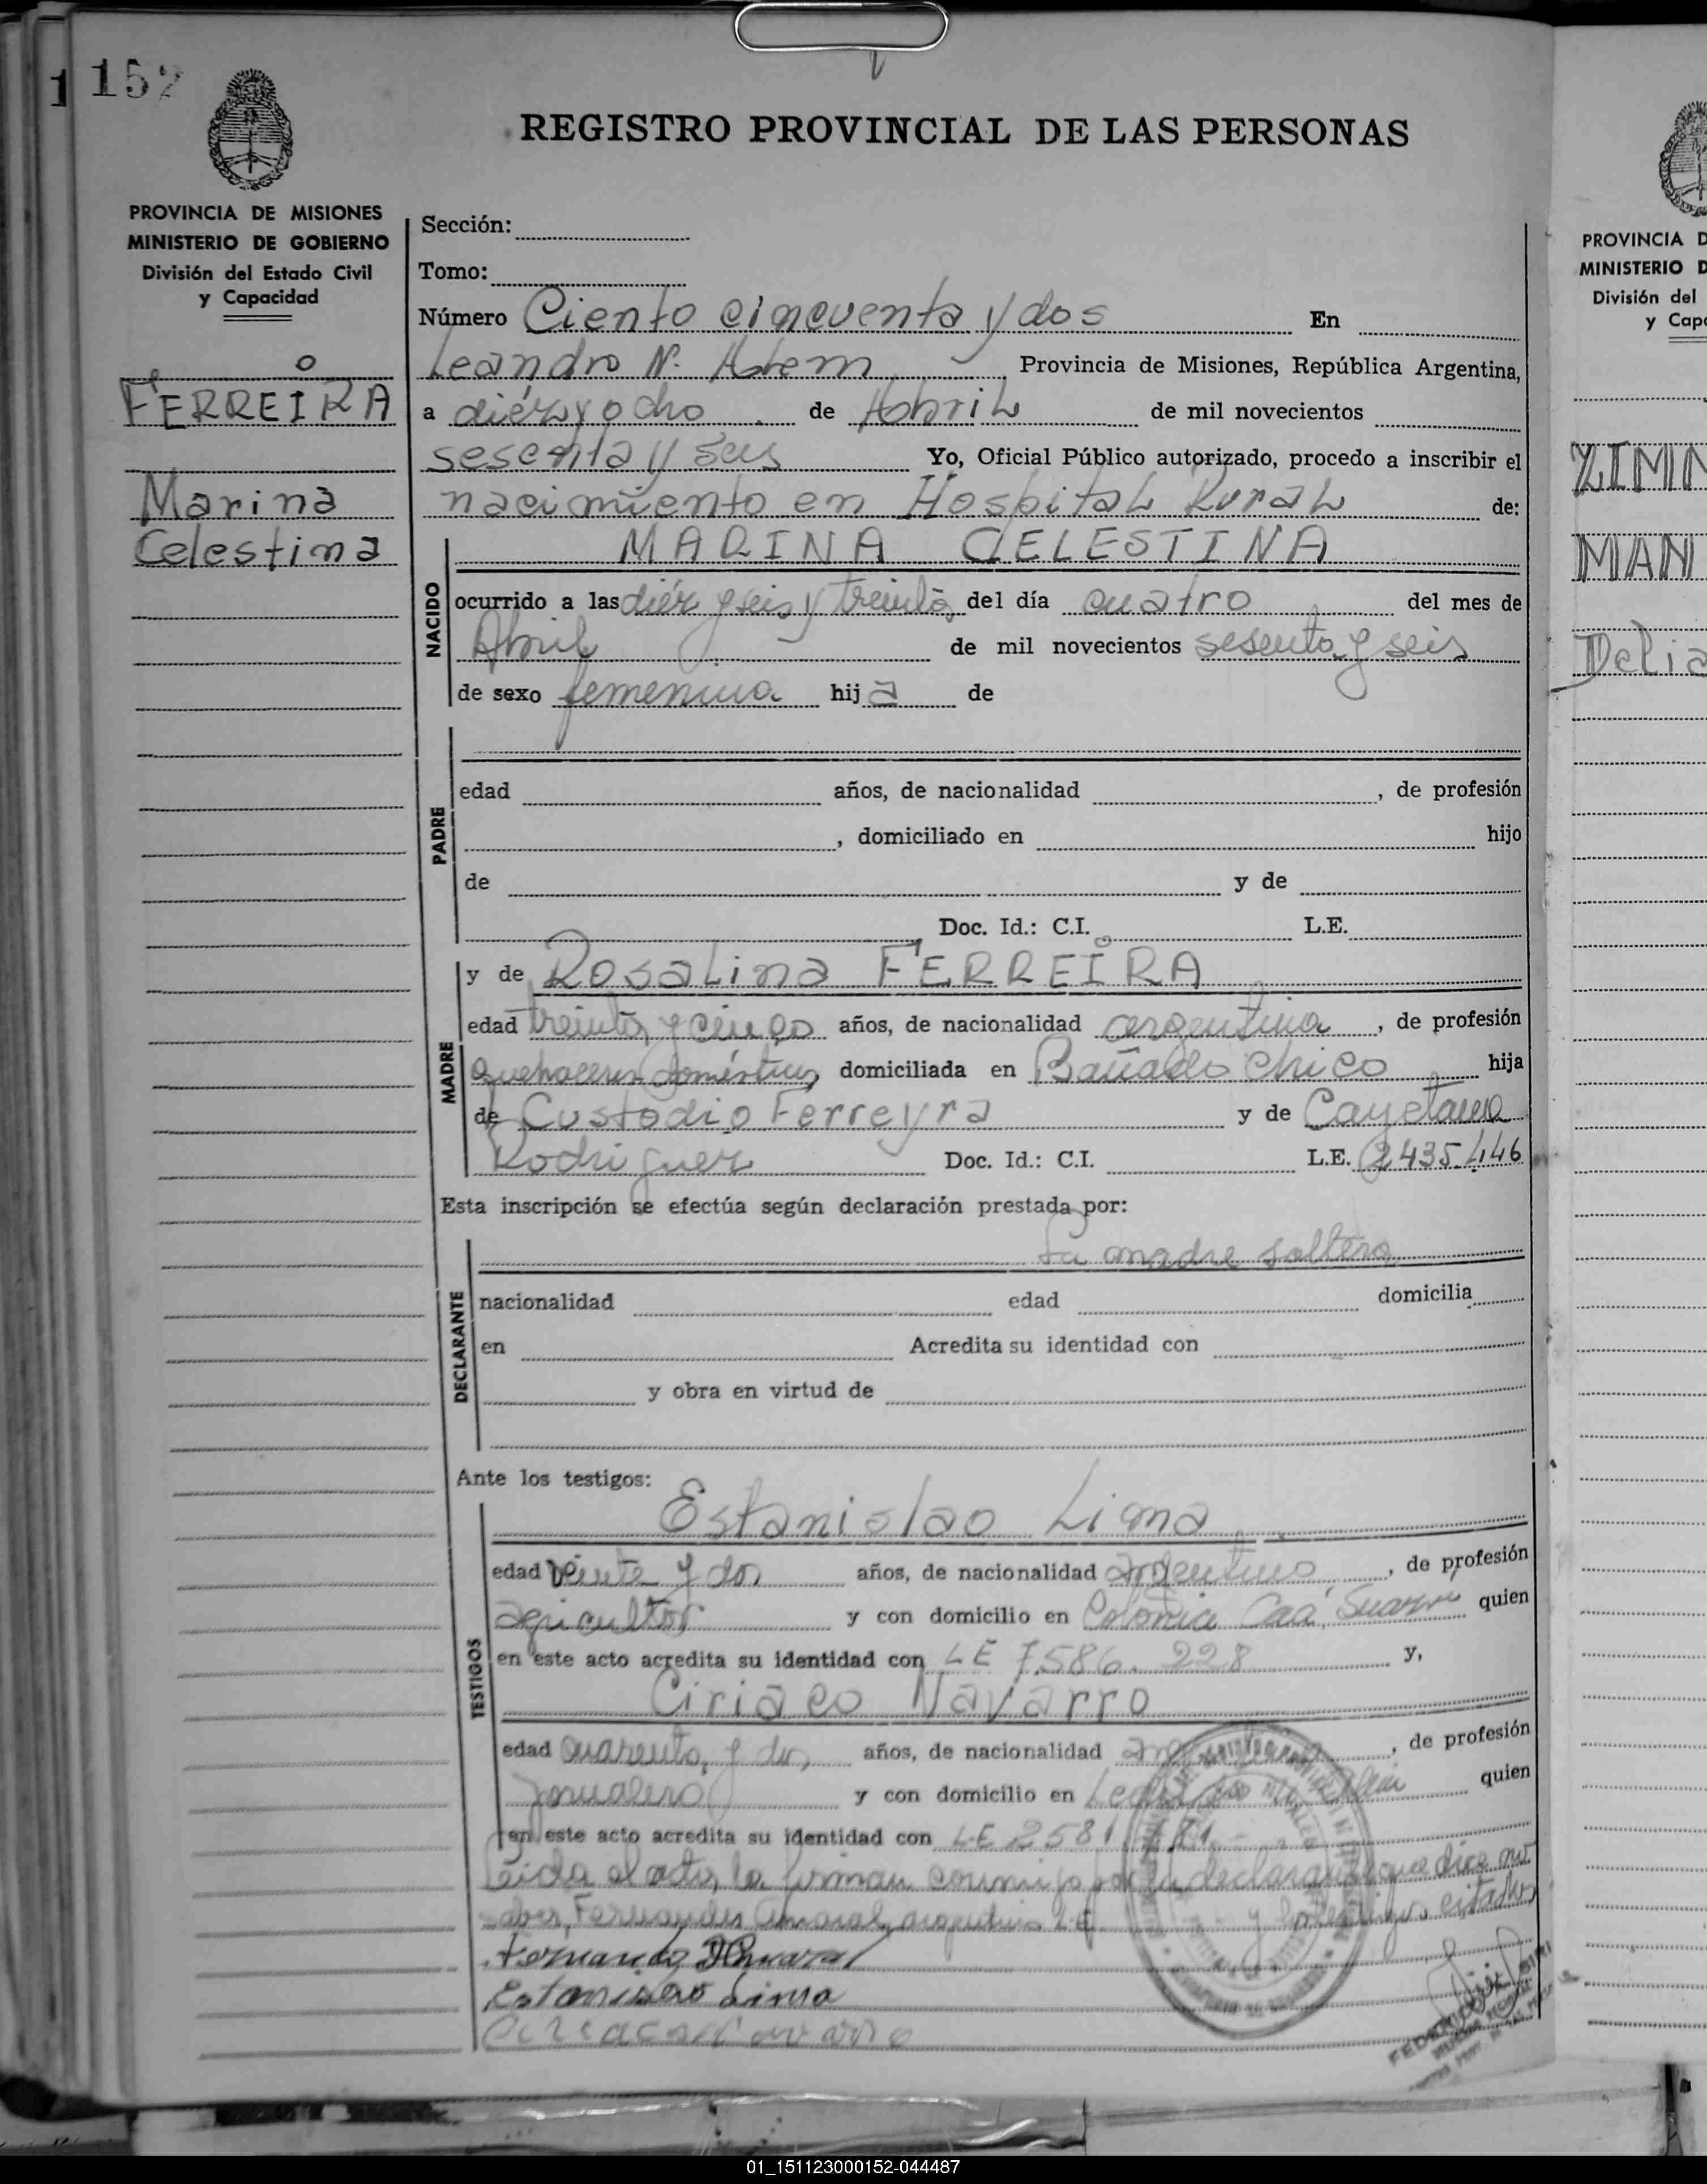 1 152
REGISTRO PROVINCIAL DE LAS PERSONAS
PROVINCIA DE MISIONES
MINISTERIO DE GOBIERNO
División del Estado Civil
y Capacidad
FERREIRA
Marina
Celestina
Sección:
Tomo:
Número Ciento cincuenta y dos En
Leandro N. Alem Provincia de Misiones, República Argentina,
a diéz y ocho de Abril de mil novecientos
sesenta y seis Yo, Oficial Público autorizado, procedo a inscribir el
nacimiento en Hospital Rural de:
MARINA CELESTINA
NACIDO
ocurrido a las diéz y seis y treinta del día cuatro del mes de
Abril de mil novecientos sesenta y seis
de sexo femenino hija de
PADRE
edad años, de nacionalidad , de profesión
, domiciliado en hijo
de y de
Doc. Id.: C.I. L.E.
MADRE
y de Rosalina FERREIRA
edad treinta y cinco años, de nacionalidad argentina , de profesión
quehaceres domésticos, domiciliada en Bañado Chico hija
de Custodio Ferreyra y de Cayetana
Rodriguez Doc. Id.: C.I. L.E. 2.435.446
Esta inscripción se efectúa según declaración prestada por:
DECLARANTE
La madre soltera
nacionalidad edad domicilia
en Acredita su identidad con
y obra en virtud de
Ante los testigos:
TESTIGOS
Estanislao Lima
edad veinte y dos años, de nacionalidad argentino , de profesión
agricultor y con domicilio en Colonia Caá quien
en este acto acredita su identidad con LE 7.586.228 y,
Ciriaco Navarro
edad cuarenta y dos años, de nacionalidad , de profesión
jornalero y con domicilio en quien
en este acto acredita su identidad con LE 2581
Leida el acta, la firman conmigo por la declarante que dice no
saber, y los testigos citados
Estanislao Lima
PROVINCIA D
MINISTERIO D
División del
y Capa
ZIMM
MAN
Delia
01_151123000152-044487